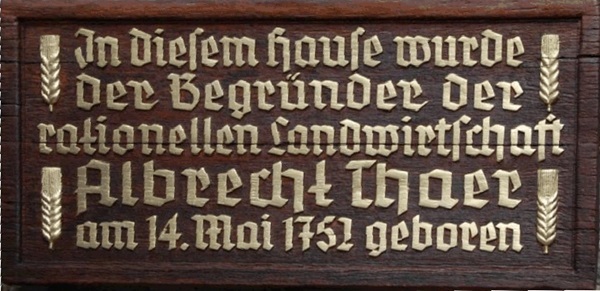 In diesem Hause wurde
der Begründer der
rationellen Landwirtschaft
Albrecht Thaer
am 14. Mai 1752 geboren